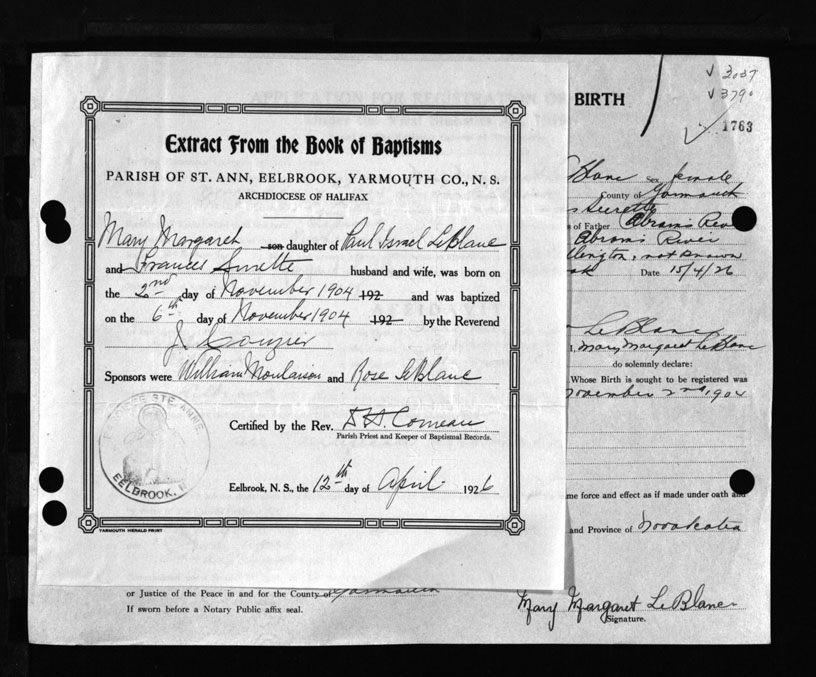 Extract From the Book of Baptisms
PARISH OF ST. ANN, EELBROOK, YARMOUTH CO., N. S.
ARCHDIOCESE OF HALIFAX
Mary Margaret son daughter of Paul Israel LeBlanc
and Frances Surette husband and wife, was born on
the 2nd day of November 1904 192 and was baptized
on the 6th day of November 1904 192 by the Reverend
J.
Sponsors were William Moulaison and Rose LeBlanc
Certified by the Rev. Comeau
Parish Priest and Keeper of Baptismal Records.
Eelbrook, N. S., the 12th day of April 1926
STE ANNE
EELBROOK, N
YARMOUTH HERALD PRINT
BIRTH
✓ 3037
✓ 3790
✓ 1763
Blanc sex female
County of Yarmouth
Surette
of Father Abrams River
Abrams River
llington, not known
ok Date 15/4/26
LeBlanc
I, Mary Margaret LeBlanc
do solemnly declare:
Whose Birth is sought to be registered was
November 2nd 1904
me force and effect as if made under oath and
and Province of Nova Scotia
or Justice of the Peace in and for the County of Yarmouth
If sworn before a Notary Public affix seal.
Mary Margaret LeBlanc
Signature.